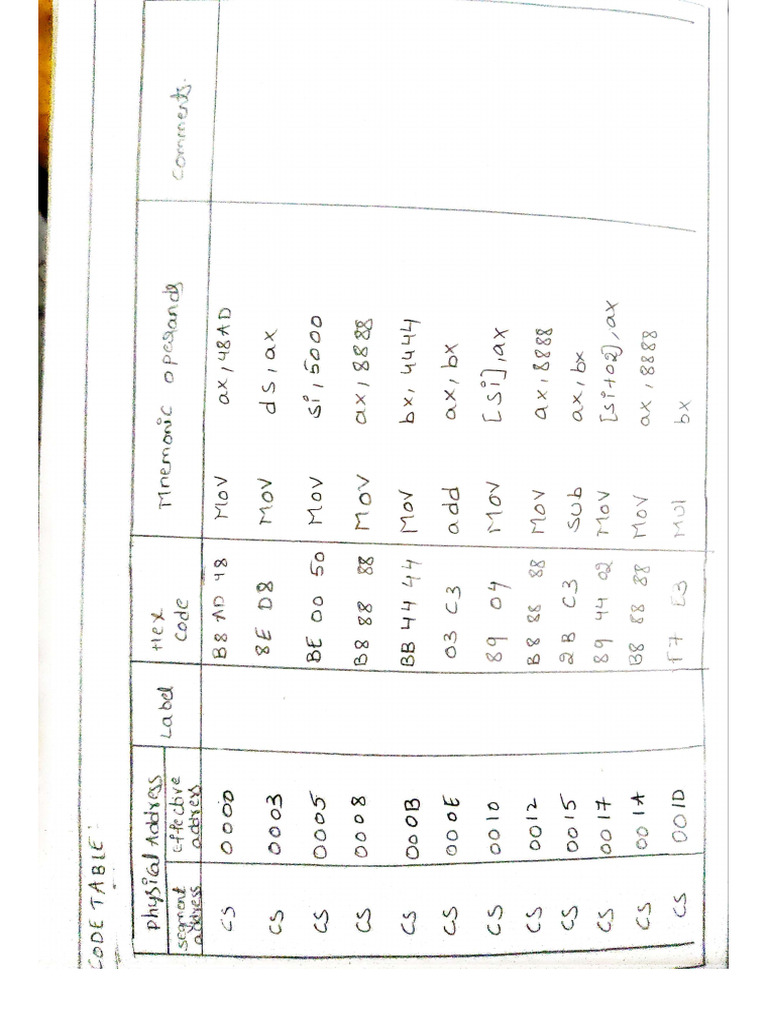 CODE TABLE:
Physical Address Label Hex Code Mnemonic operands Comments.
segment address effective address
CS 0000 B8 AD 48 MOV ax, 48AD
CS 0003 8E D8 MOV ds, ax
CS 0005 BE 00 50 MOV si, 5000
CS 0008 B8 88 88 MOV ax, 8888
CS 000B BB 44 44 MOV bx, 4444
CS 000E 03 C3 add ax, bx
CS 0010 89 04 MOV [si], ax
CS 0012 B8 88 88 MOV ax, 8888
CS 0015 2B C3 SUb ax, bx
CS 0017 89 44 02 MOV [si+02], ax
CS 001A B8 88 88 MOV ax, 8888
CS 001D F7 E3 MUl bx